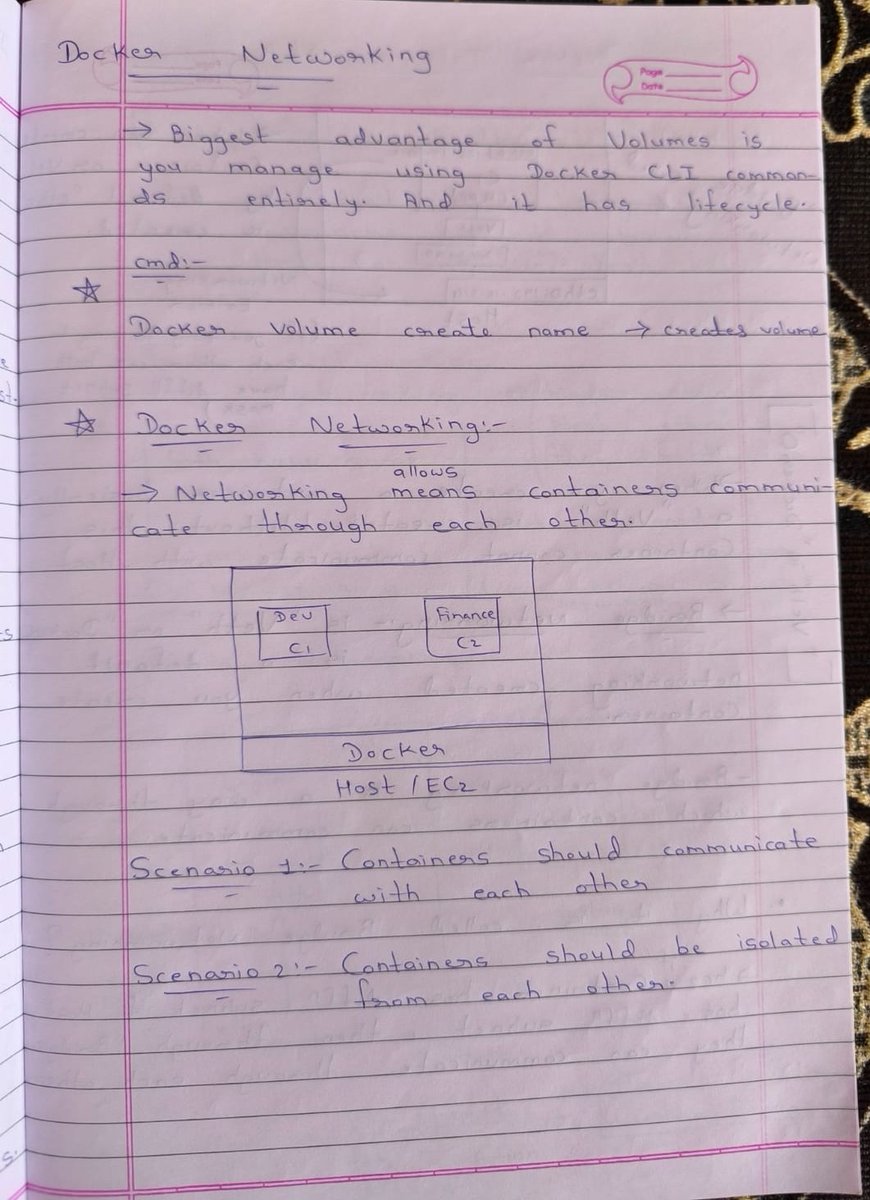 Docker Networking
Page
Date
→ Biggest advantage of Volumes is
you manage using Docker CLI comman-
ds entirely. And it has lifecycle.
cmd:-
☆
Docker volume create name → creates volume
☆ Docker Networking:-
allows
→ Networking means containers communi-
cate through each other.
Dev Finance
C1 C2
Docker
Host / EC2
Scenario 1:- Containers should communicate
with each other
Scenario 2:- Containers should be isolated
from each other.